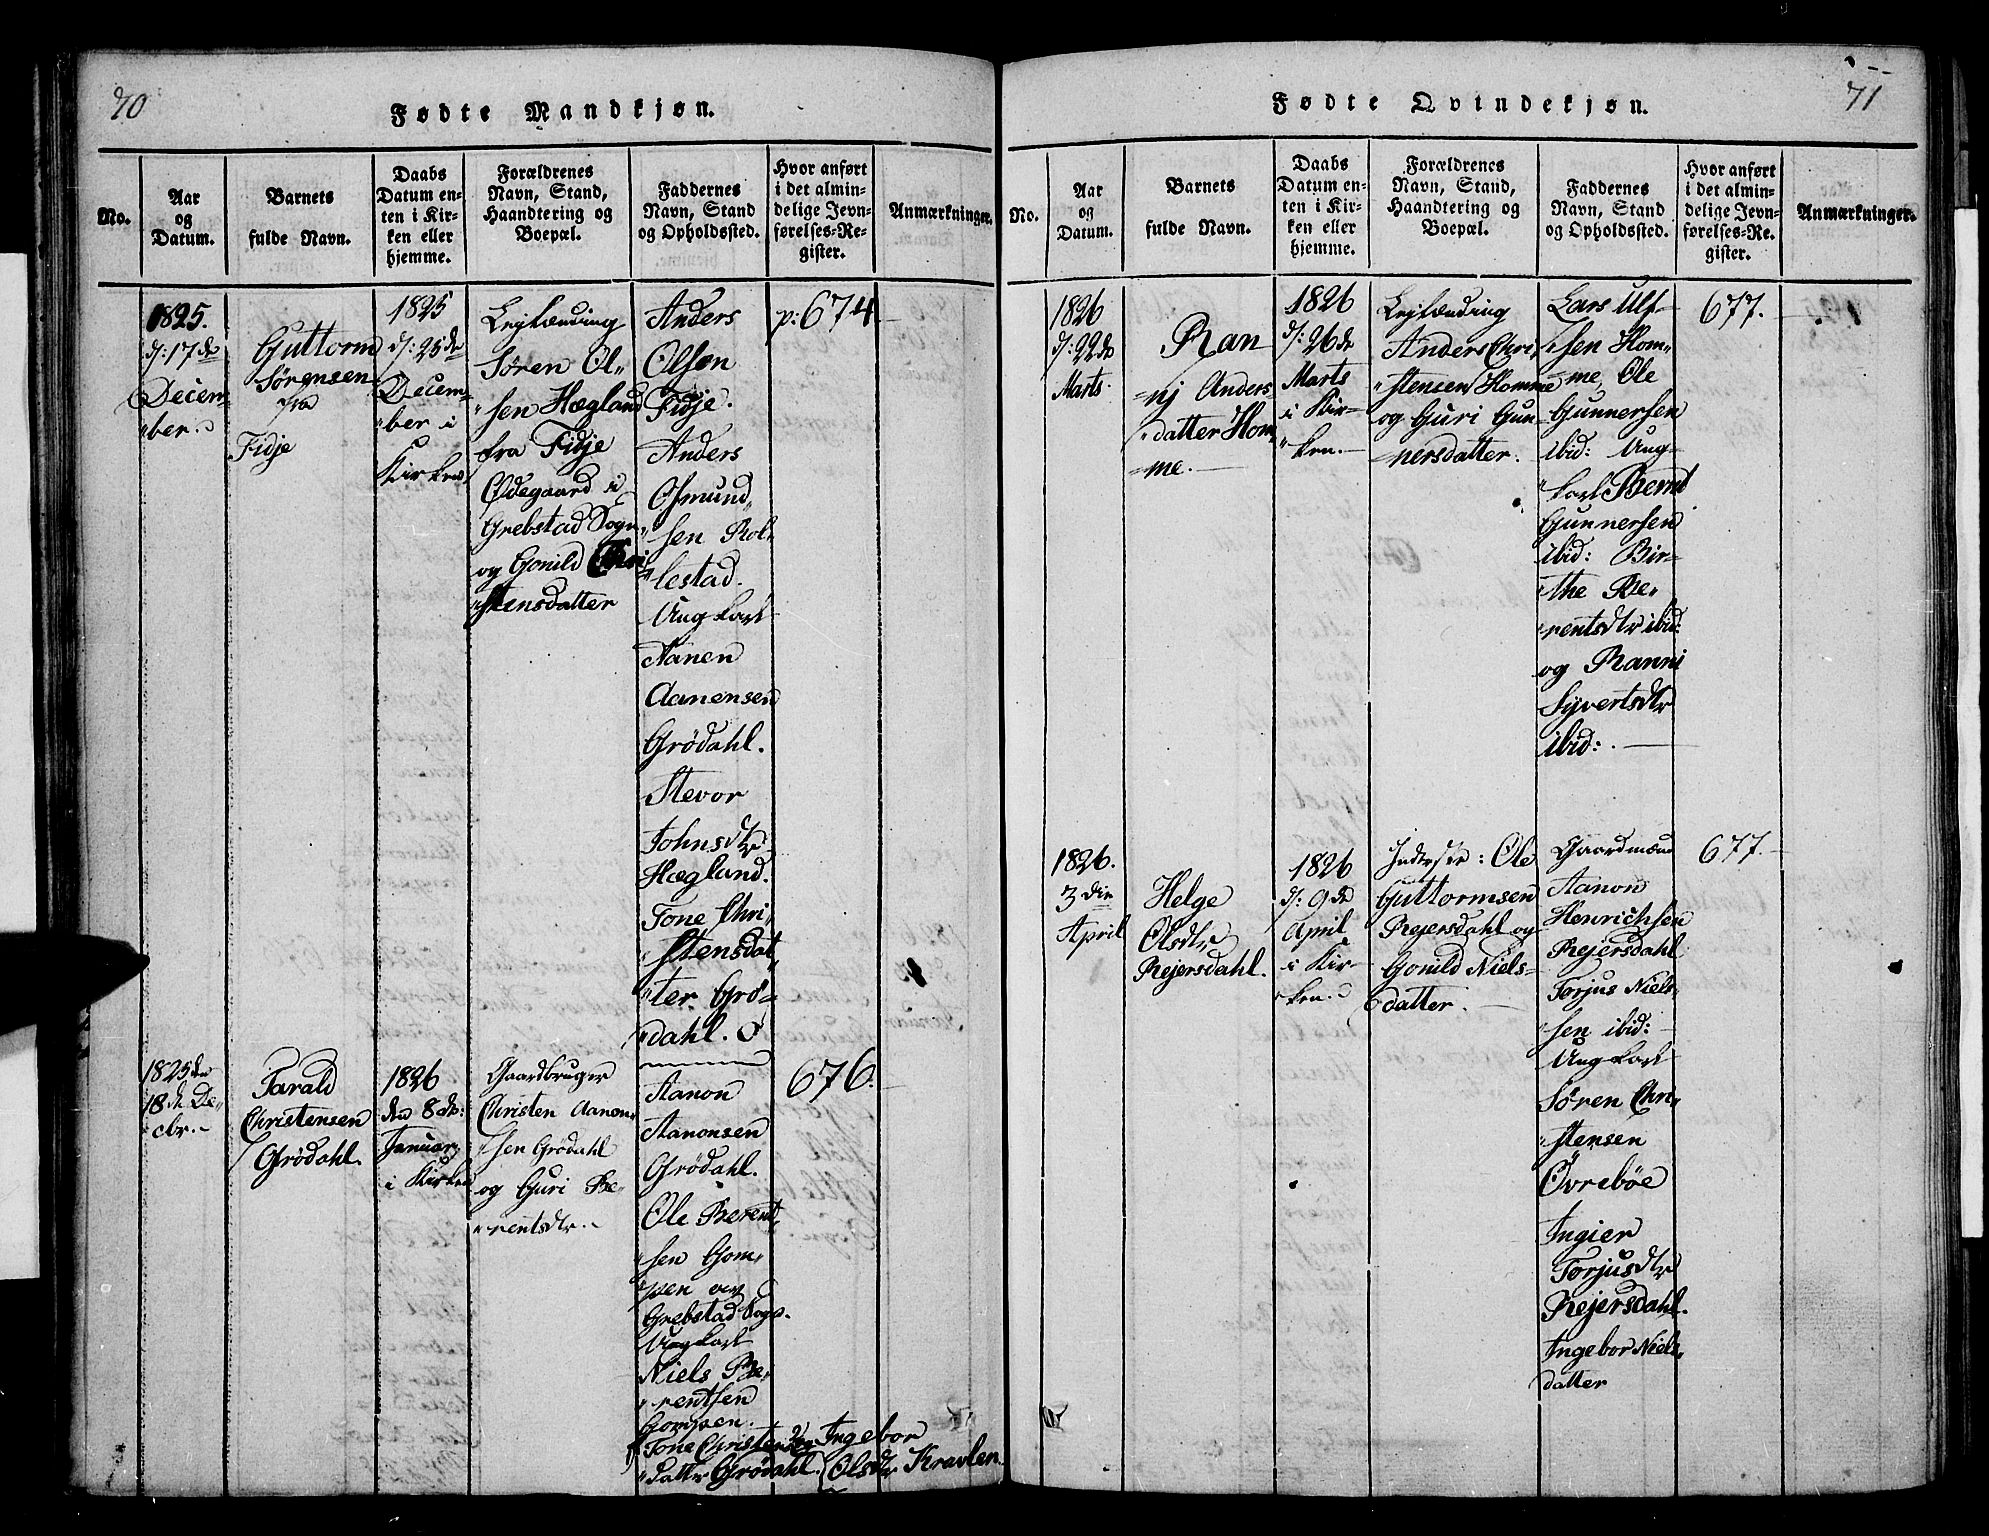 70
Fødte Mandkjøn.
No.
Aar
og
Datum.
Barnets
fulde Navn.
Daabs
Datum en-
ten i Kir-
ken eller
hjemme.
Forældrenes
Navn, Stand,
Haandtering og
Boepæl.
Faddernes
Navn, Stand
og Opholdssted.
Hvor anført
i det almin-
delige Jevn-
førelses-Re-
gister.
Anmærkninger.
1825.
d: 17de
Decem-
ber.
Guttorm
Sörensen
fra
Fidje
1825
d: 25de
Decem-
ber i
Kirken
Lejlænding
Sören Ol-
sen Hægland
fra Fidje
Ødegaard i
Grebstad Sogn
og Gonild Chri-
stensdatter
Anders
Olsen
Fidje.
Anders
Osmund-
sen Rol-
lestad.
Ungkarl
Aanen
Aanensen
Grödahl.
Stevor
Johnsdtr
Hægland.
Tone Chri-
stensdat-
ter Grö-
dahl.
p: 674
1825 den
18de De-
cbr.
Tarald
Christensen
Grödahl.
1826
den 8de
Januar
i Kirken
Gaardbruger
Christen Aanon-
sen Grödahl
og Guri Be-
rentsdtr.
Aanon
Aanonsen
Grödahl.
Ole Berent-
sen Gom-
pen
Grebstad Sogn.
Ungkarl
Niels Be-
rentsen
Gompen.
Tone Christens
datter Grödahl.
Ingebor
Olsdtr Kravlen.
676.
71
Fødte Qvindekjøn.
No.
Aar
og
Datum.
Barnets
fulde Navn.
Daabs
Datum en-
ten i Kir-
ken eller
hjemme.
Forældrenes
Navn, Stand,
Haandtering og
Boepæl.
Faddernes
Navn, Stand
og Opholdssted.
Hvor anført
i det almin-
delige Jevn-
førelses-Re-
gister.
Anmærkninger.
1826
d: 22de
Marts.
Ran
nj Anders
datter Hom
me.
1826
d: 26de
Marts
i Kir-
ken.
Lejlænding
Anders Chri-
stensen Homme
og Guri Gun-
nersdatter.
Lars Ulf-
sen Hom-
me, Ole
Gunnersen
ibid: Ung-
karl Bernt
Gunnersen
ibid: Bir-
the Be-
rentsdtr ibid:
og Ranni
Syvertsdtr
ibid:
677.
1826.
3die
April
Helge
Olsdtr
Rejersdahl.
1826
d: 9de
April
i Kir-
ken.
Inderste: Ole
Guttormsen
Rejersdahl og
Gonild Niels-
datter.
Gaardmænd
Aanon
Henrichsen
Rejersdahl
Torjus Niels-
sen ibid:
Ungkarl
Sören Chri-
stensen
Övreböe
Ingier
Torjusdtr
Rejersdahl.
Ingebor Niels-
datter
677.